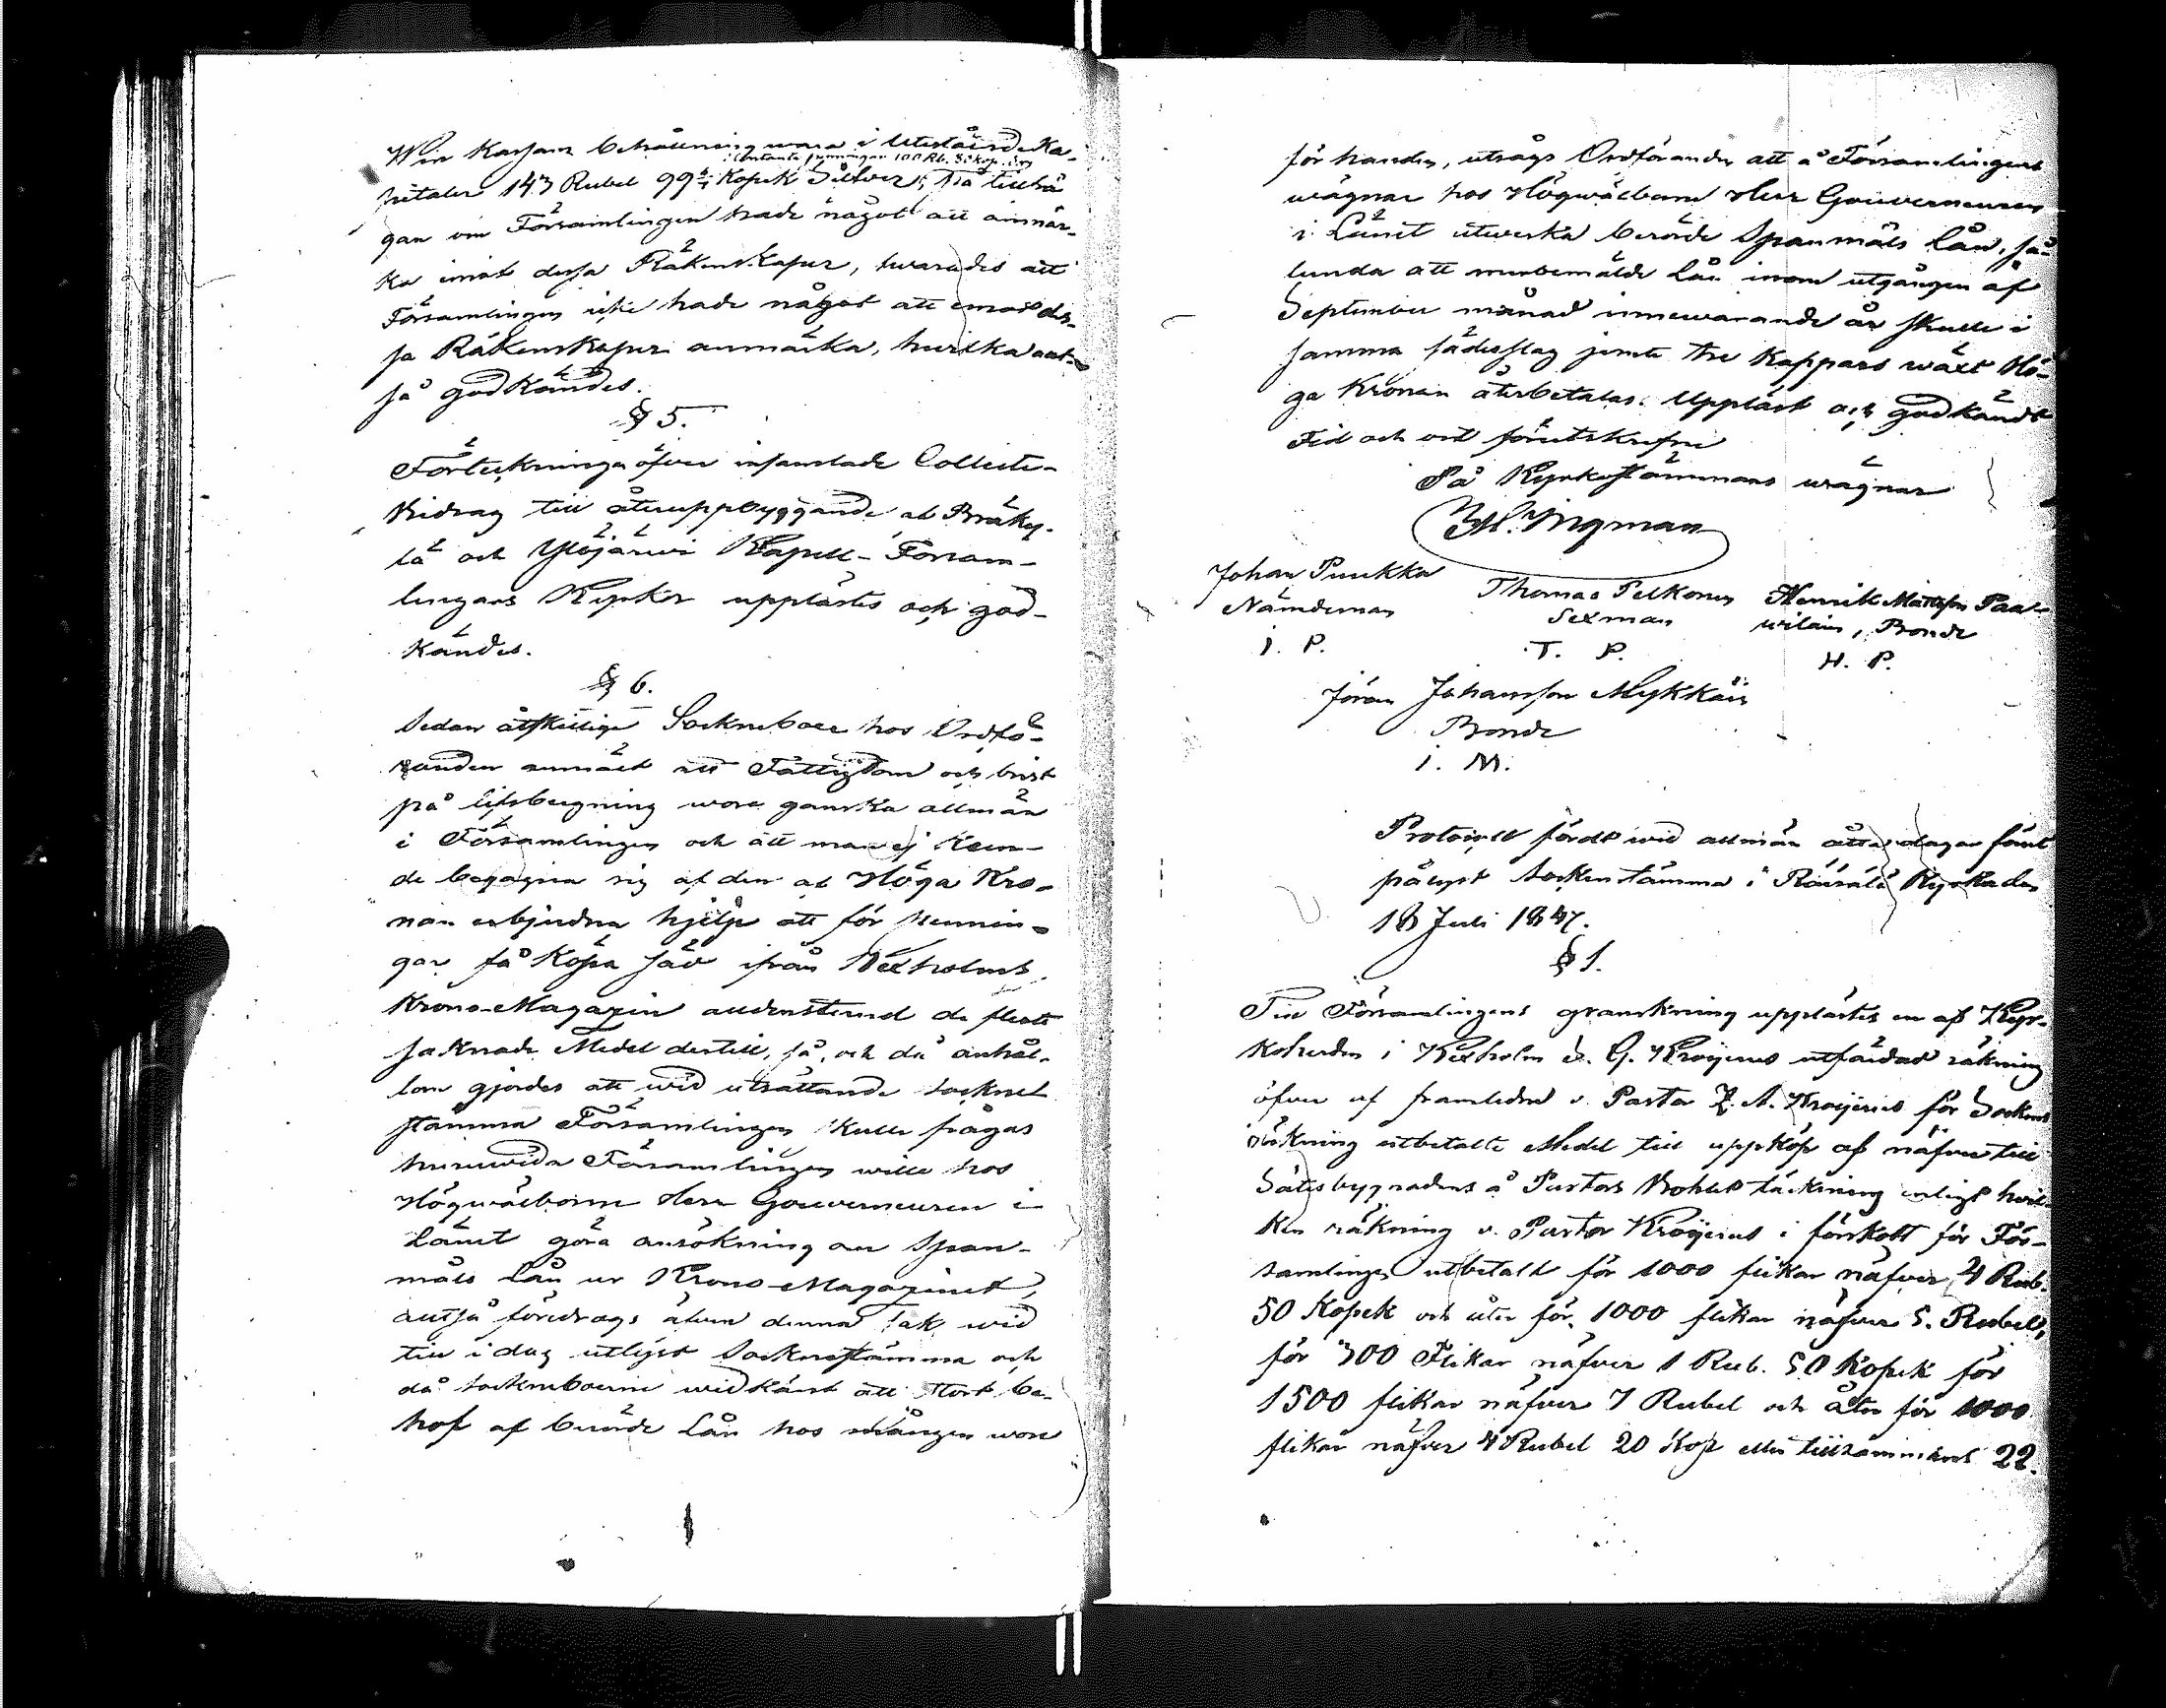 Win Kassans behållning wara i Utestående Ka-
i contanta penningar 100 Rb. 8 kop. och
pitaler 143 Rubel 99 4/7 Kopek Silfver; På tillfrå
gan om Församlingen hade något att anmär-
ka imot dessa Räkenskaper, swarades att
Församlingen icke hade något att emot des-
sa Räkenskaper anmärka, hvilka alt-
så godkändes.
§ 5.
Förteckningen öfver insamlade Collecte-
bidrag till återuppbyggande af Bräky-
lä och Ylöjärvi Kapell-Försam-
lingars Kyrkor upplästes och god-
kändes.
§ 6.
Sedan åtskillige Sockneboer hos Ordfö-
randen anmält att Fattigdom och brist
på lifsbergning wore ganska allmän
i Församlingen och att man ej kun-
de begagna sig af den af Höga Kro-
nan erbjudna hjelp att för pennin-
gar få köpa säd ifrån Kexholms
Krono-Magazin alldenstund de fleste
saknade Medel dertill, så, och då anhål-
lan gjordes att wid utsättande sockne-
stämma Församlingen skulle frågas
huruwida Församlingen wille hos
Högwälborne Herr Gouverneuren i
Länet göra ansökning om Span-
måls Lån ur Krono-Magazinet,
altså föredrogs äfven denna sak wid
till i dag utlyst Socknestämma och
då sockneboerne widkänt att stort be-
hof af berörde Lån hos mången wore
för handen, utsågs Ordföranden att å Församlingens
wägnar hos Högwälborne Herr Gouverneuren
i Länet utwerka berörde Spanmåls Lån, så-
lunda att merbemälde Lån inom utgången af
September månad innewarande år skulle i
samma sädesslag jemte tre kappars wäxt Hö-
ga Kronan återbetalas. Uppläst och godkändt
Tid och ort förutskrefne
På Kyrkostämmans wägnar
Ingman
Johan Puukka
Nämdeman
I. P.
Thomas Pelkonen
Sexman
T. P.
Henrik Mattsson Paa-
wilain, Bonde
H. P.
Jöran Johansson Mykkäin
Bonde
I. M.
Protocoll fördt wid allmän åtta dagar förut
pålyst Sockenstämma i Räisälä Kyrka den
18 Juli 1847.
§ 1.
Till Församlingens granskning upplästes en af Kyr-
koherden i Kexholm G. Krogerus utfärdad räkning
öfver af framledne v. Pastor Z. A. Krogerus för Socknens
räkning utbetalte Medel till uppköp af näfver till
Sätesbygnadens å Pastors Bohlet täckning enligt hvil-
ken räkning v. Pastor Krogerus i förskott för För-
samlingen utbetalt för 1000 flikar näfver 4 Rub.
50 Kopek och åter för 1000 flikar näfver 5. Rubel,
för 300 Flikar näfver 1 Rub. 50 Kopek för
1500 flikar näfver 7 Rubel och åter för 1000
flikar näfver 4 Rubel 20 Kop eller tillsammans 22.